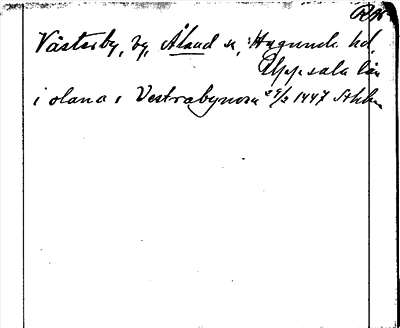 Västerby, by, Åland sn, Hagunda hd,
Uppsala län
i olana s Vestrabynom 29/2 1447 Sthlm